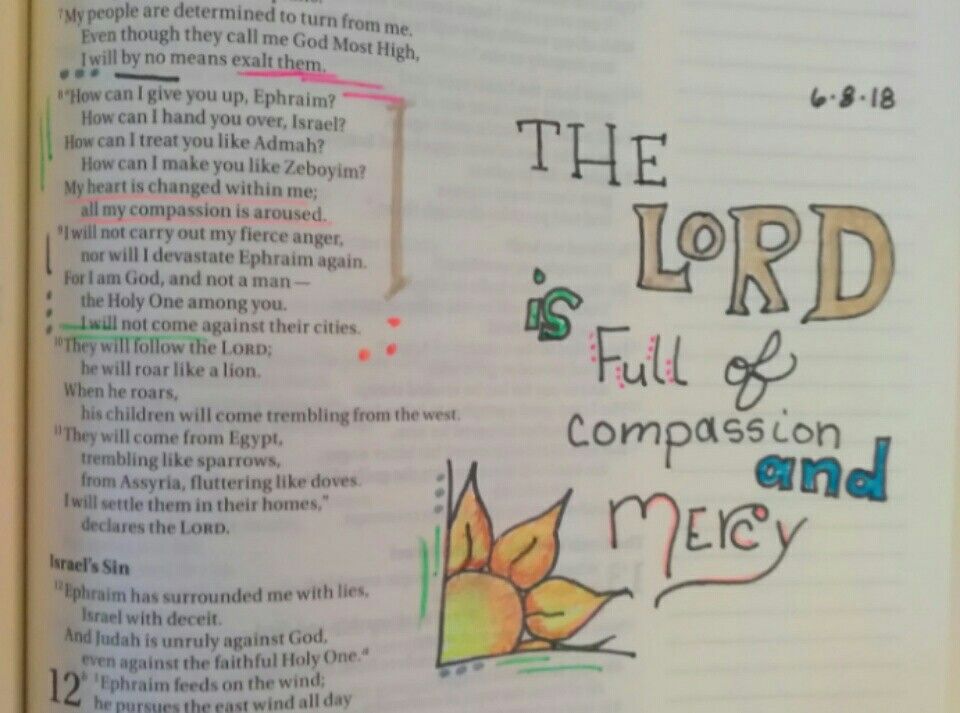 ⁷My people are determined to turn from me.
Even though they call me God Most High,
I will by no means exalt them.
⁸"How can I give you up, Ephraim?
How can I hand you over, Israel?
How can I treat you like Admah?
How can I make you like Zeboyim?
My heart is changed within me;
all my compassion is aroused.
⁹I will not carry out my fierce anger,
nor will I devastate Ephraim again.
For I am God, and not a man—
the Holy One among you.
I will not come against their cities.
¹⁰They will follow the LORD;
he will roar like a lion.
When he roars,
his children will come trembling from the west.
¹¹They will come from Egypt,
trembling like sparrows,
from Assyria, fluttering like doves.
I will settle them in their homes,"
declares the LORD.
Israel's Sin
¹²Ephraim has surrounded me with lies,
Israel with deceit.
And Judah is unruly against God,
even against the faithful Holy One.ᵃ
12ᵇ ¹Ephraim feeds on the wind;
he pursues the east wind all day
6.8.18
THE
LORD
is
Full of
compassion
and
MERcy